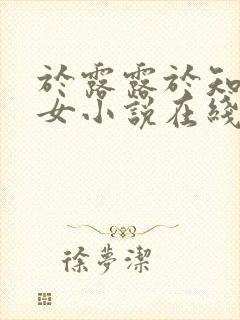 於露露於知
女小說在綫
徐夢潔